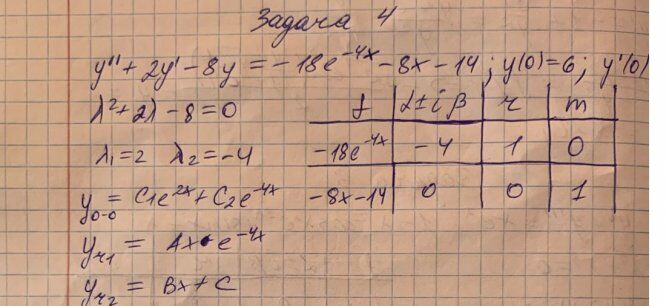 Задача 4
y'' + 2y' - 8y = -18e^{-4x} - 8x - 14; y(0)=6; y'(0)
λ² + 2λ - 8 = 0
λ₁ = 2 λ₂ = -4
y₀₋₀ = C₁e^{2x} + C₂e^{-4x}
y_{ч1} = Ax·e^{-4x}
y_{ч2} = Bx + C
f α±iβ r m
-18e^{-4x} -4 1 0
-8x-14 0 0 1